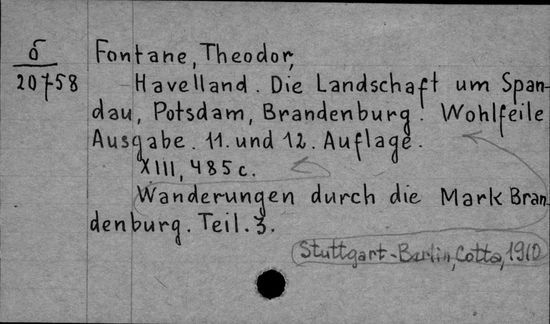 б
20758
Fontane, Theodor,
Havelland. Die Landschaft um Span-
dau, Potsdam, Brandenburg. Wohlfeile
Ausgabe. 11. und 12. Auflage.
XIII, 485 c.
Wanderungen durch die Mark Bran
denburg. Teil. 3.
Stuttgart-Berlin, Cotta, 1910